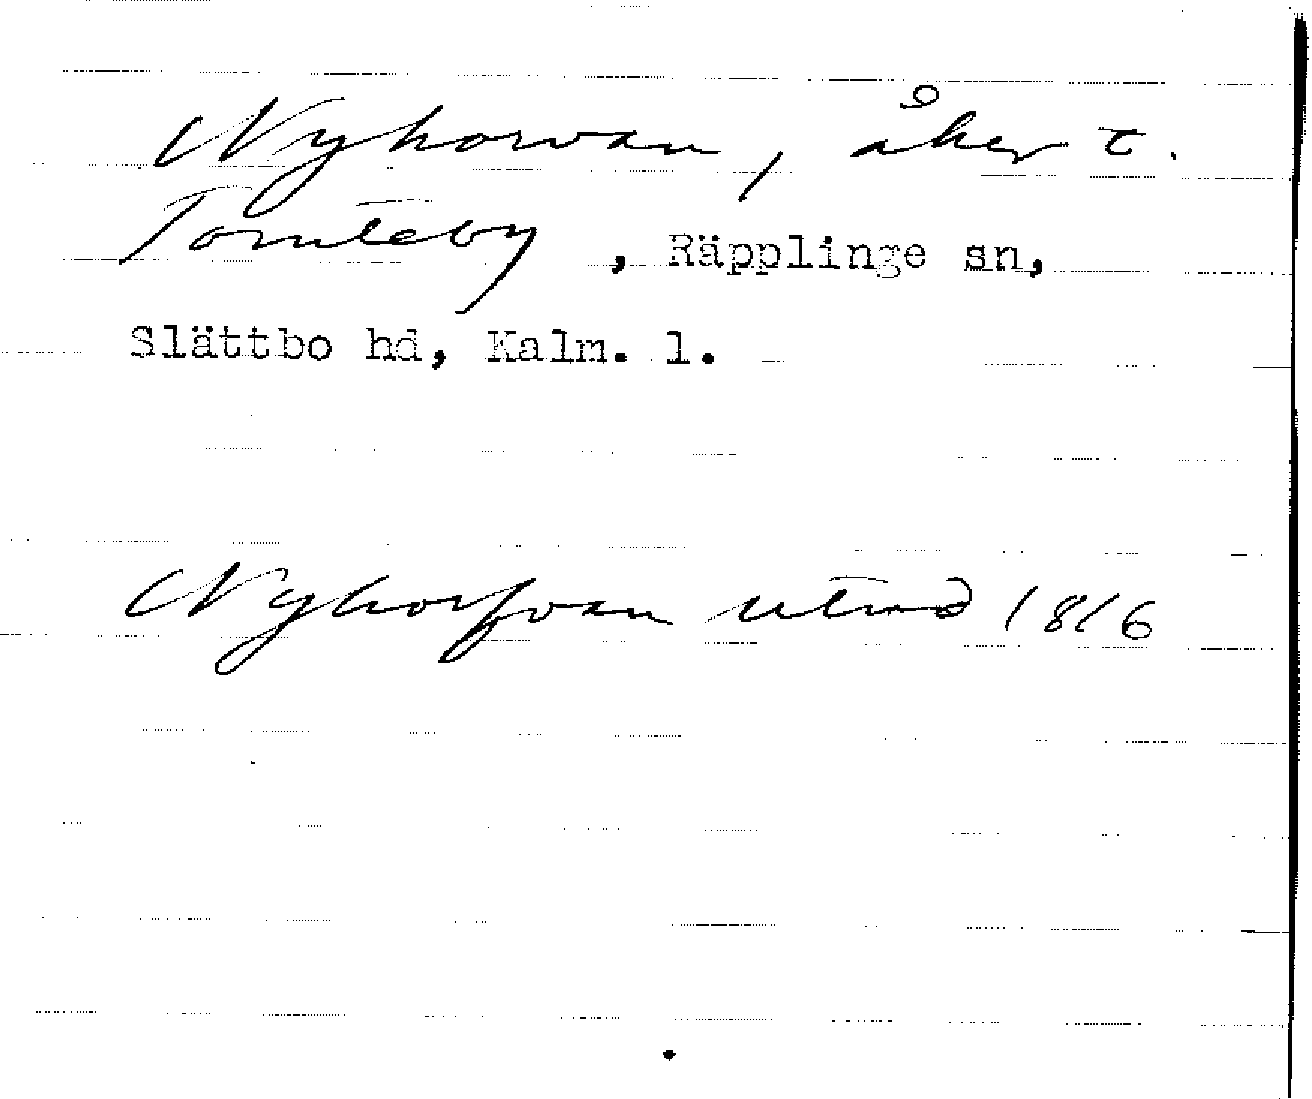 Nyhorvan, åker t.
Tomteby, Räpplinge sn,
Slättbo hd, Kalm. l.
Nyhorfvan utmd 1816